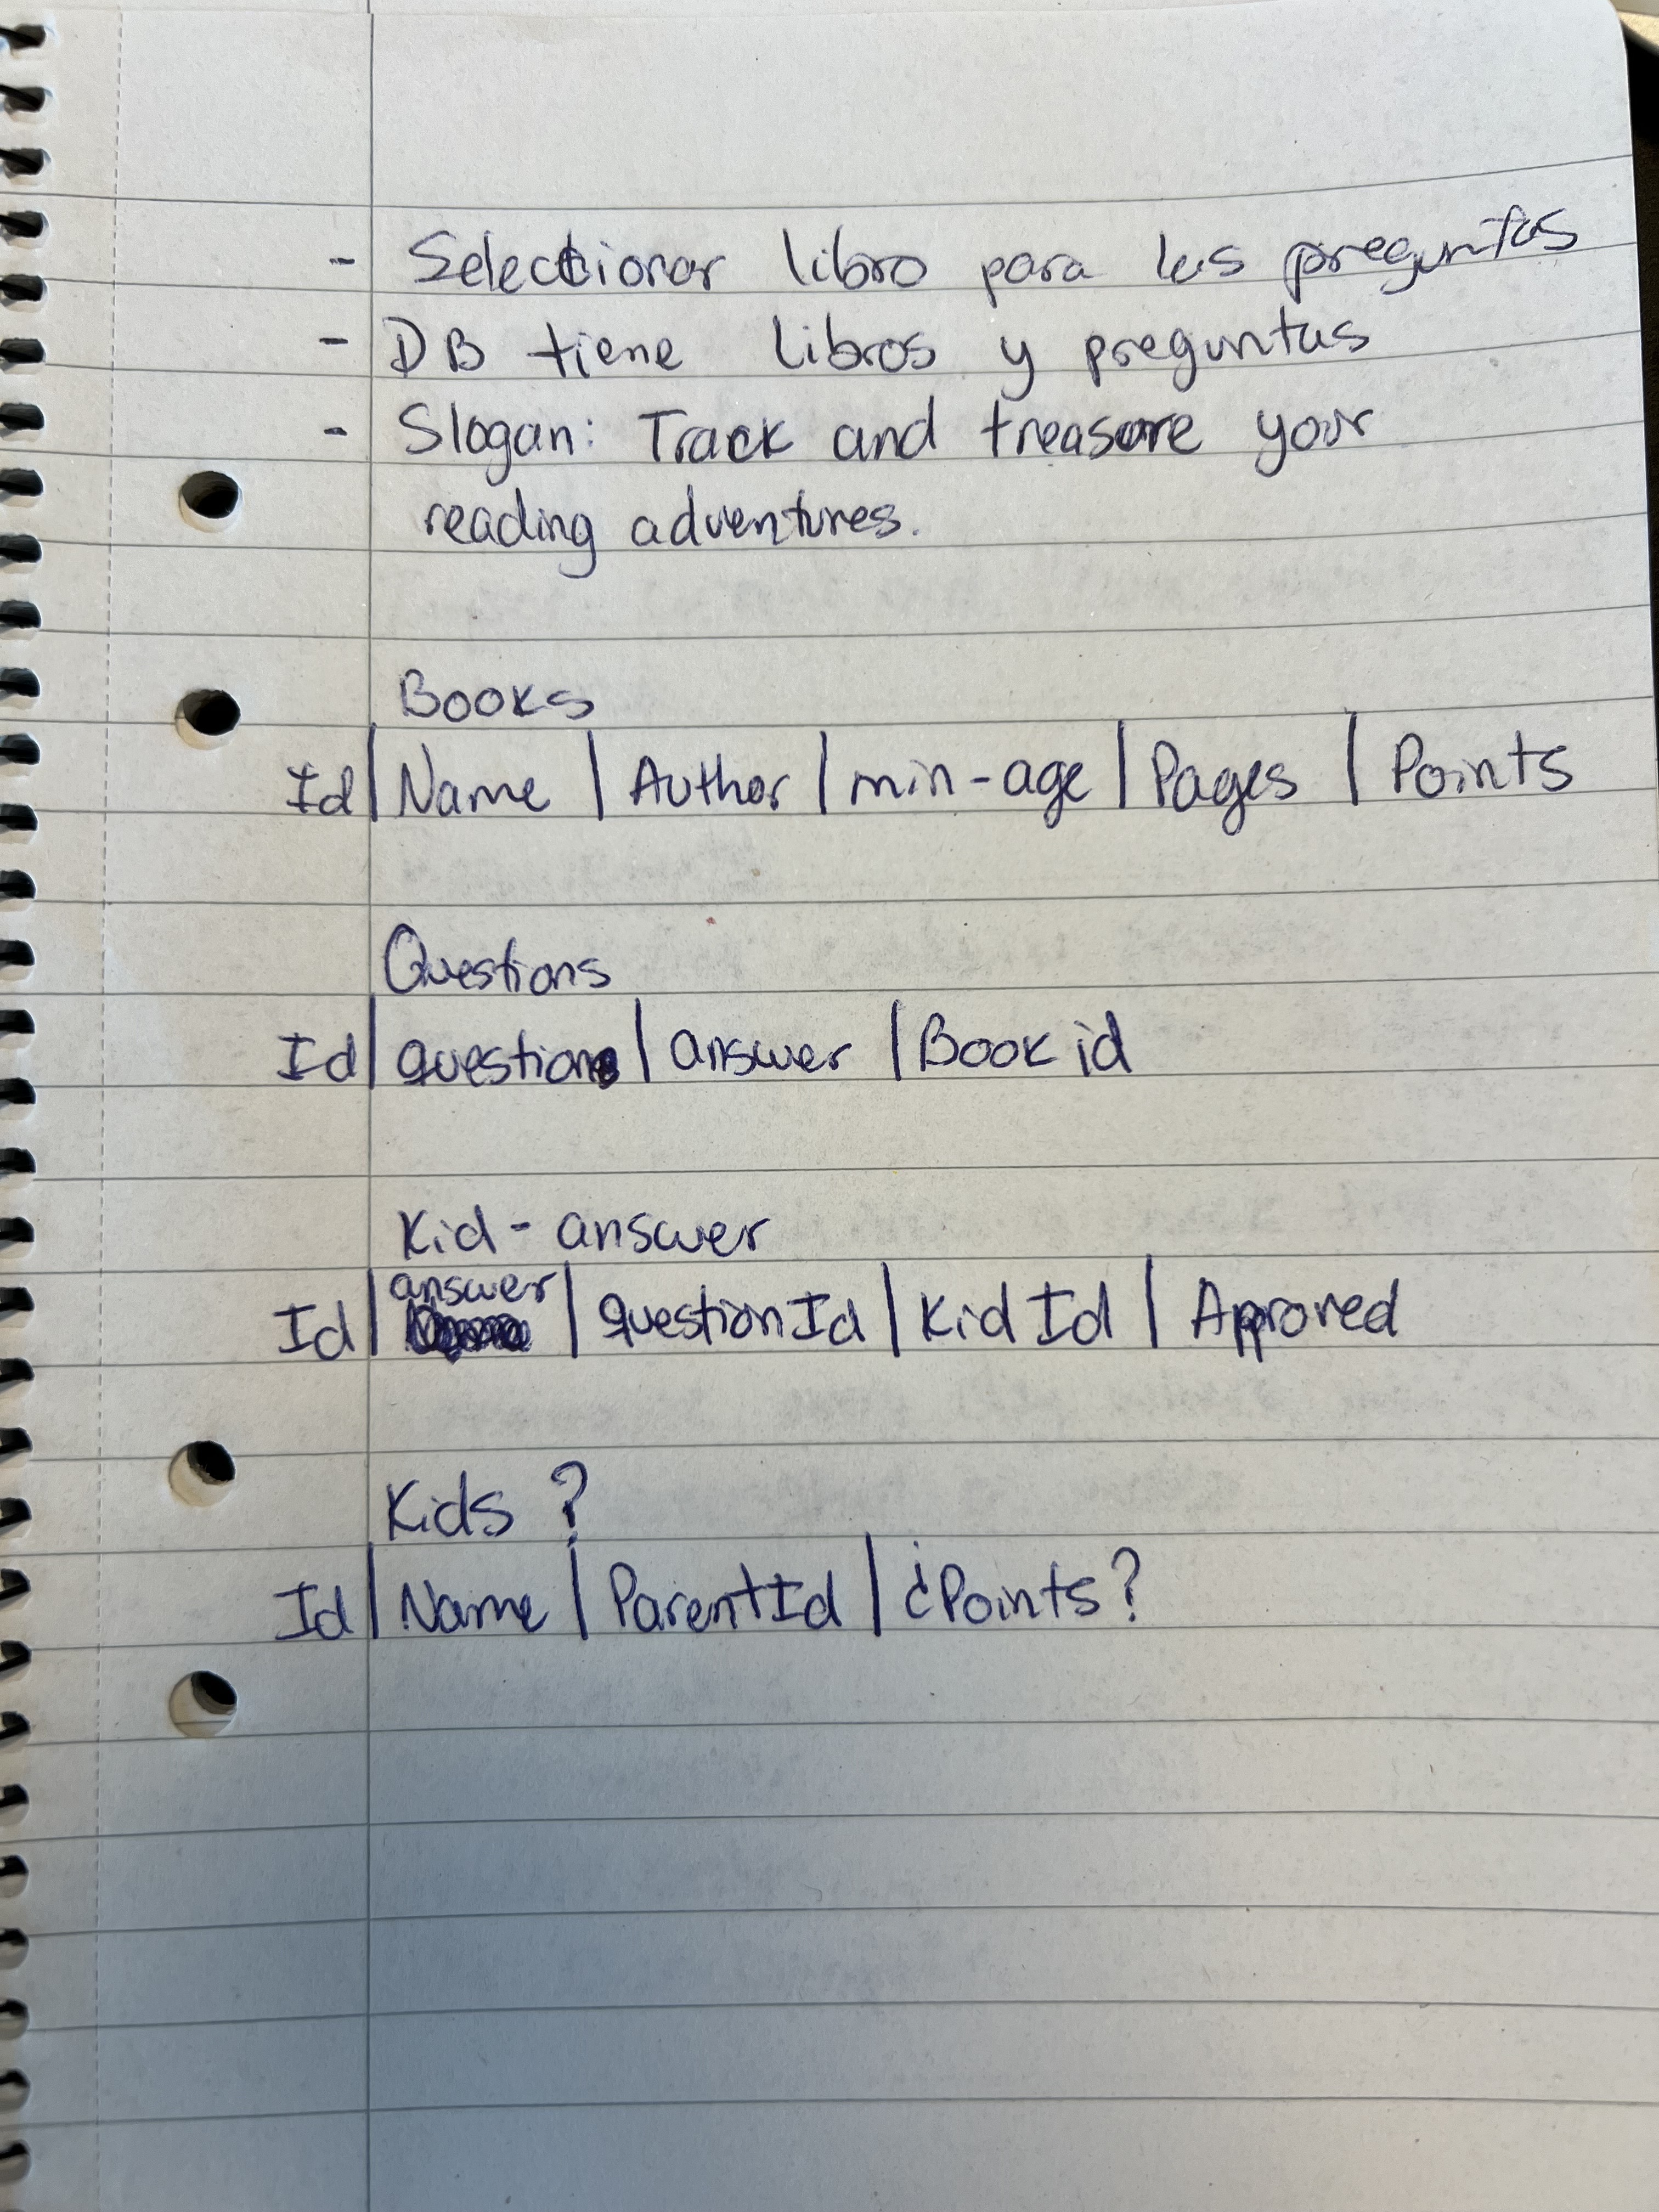 - Selectionar libro para las preguntas
- DB tiene libros y preguntas
- Slogan: Track and treasure your
reading adventures.
Books
Id | Name | Author | min-age | Pages | Points
Questions
Id | question | answer | Book id
Kid-answer
answer
Id | | questionId | Kid Id | Approved
Kids ?
Id | Name | ParentId | ¿Points?